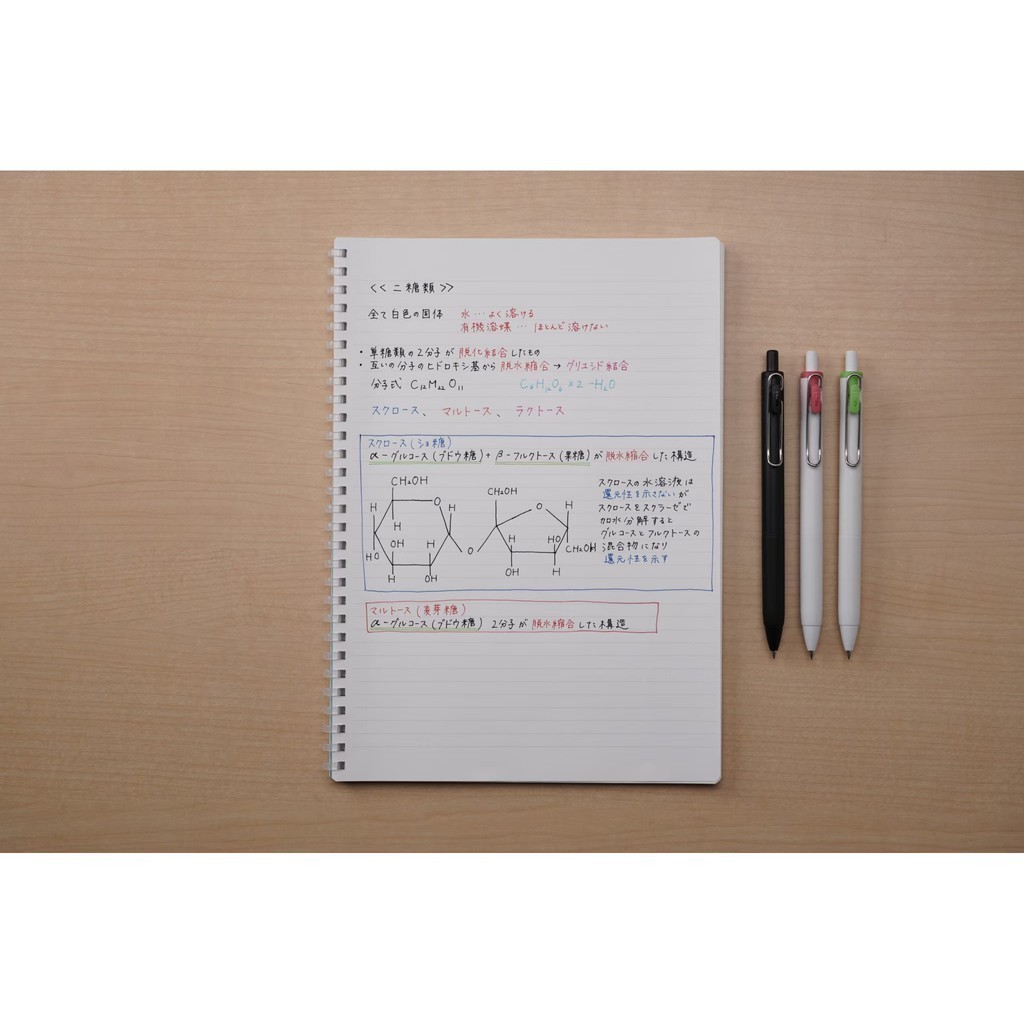 << 二糖類 >>
全て白色の固体 水…よく溶ける
有機溶媒…ほとんど溶けない
・単糖類の2分子が脱化結合したもの
・互いの分子のヒドロキシ基から脱水縮合→グリコシド結合
分子式 C₁₂M₂₂O₁₁ C₆H₁₂O₆×2-H₂O
スクロース、マルトース、ラクトース
スクロース(ショ糖)
α-グルコース(ブドウ糖)+β-フルクトース(果糖)が脱水縮合した構造
スクロースの水溶液は
還元性を示さないが
スクロースをスクラーゼで
加水分解すると
グルコースとフルクトースの
混合物になり
還元性を示す
CH₂OH
O
H
H
H
H
OH
H
HO
H
OH
O
CH₂OH
O
H
H
HO
CH₂OH
OH
H
マルトース(麦芽糖)
α-グルコース(ブドウ糖) 2分子が脱水縮合した構造